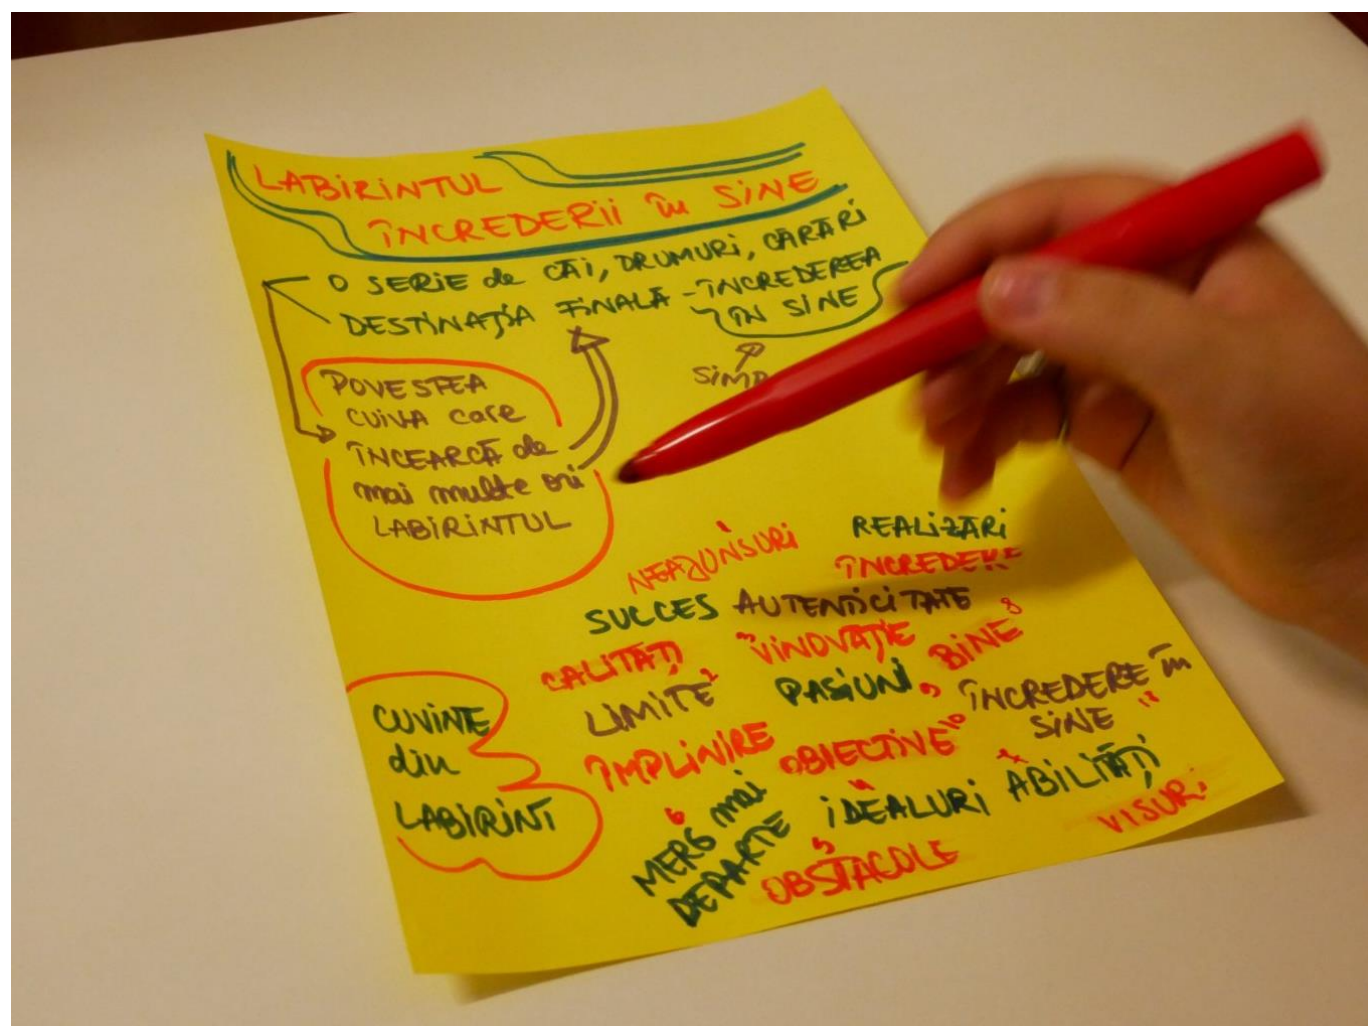 LABIRINTUL
ÎNCREDERII în SINE
O SERIE de CĂI, DRUMURI, CĂRĂRI
DESTINAȚIA FINALĂ - ÎNCREDEREA
ÎN SINE
POVESTEA
CUIVA care
ÎNCEARCĂ de
mai multe ori
LABIRINTUL
NEAJUNSURI
REALIZĂRI
ÎNCREDERE
SUCCES AUTENTICITATE
CALITĂȚI
VINOVAȚIE
BINE 8
LIMITE 2
PASIUNI
ÎNCREDERE în
SINE
ÎMPLINIRE
OBIECTIVE 10
CUVINTE
din
LABIRINT
MERG mai
DEPARTE
IDEALURI
ABILITĂȚI
VISURI
OBSTACOLE